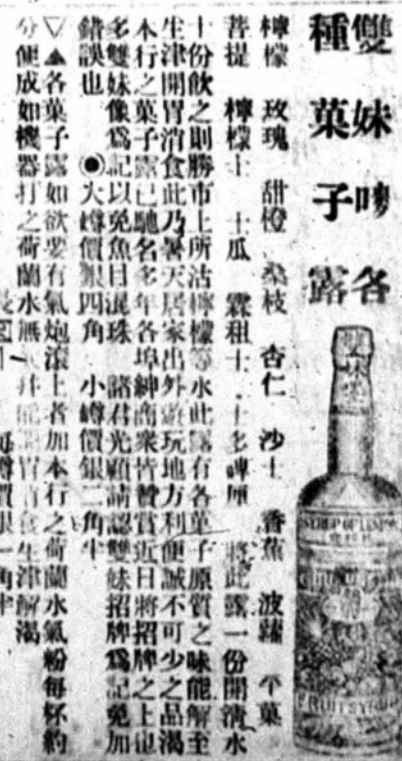 雙妹嘜各
種菓子露
檸檬 玫瑰 甜橙 桑枝 杏仁 沙士 香蕉 波蘿 苹菓
菩提 檸檬士 士瓜 霖租士 士多啤厘 將此露一份開清水
十份飲之則勝市上所沽檸檬等水此露有各菓子原質之味能解至
生津開胃消食此乃暑天居家出外遊玩地方利便誠不可少之品渴
本行之菓子露已馳名多年各埠紳商衆皆贊賞近日將招牌之上也
多雙妹像爲記以免魚目混珠 諸君光顧請認雙妹招牌爲記免加
錯誤也 ◉大樽價銀四角 小樽價銀二角半
▽▲各菓子露如欲要有氣炮滾上者加本行之荷蘭水氣粉每杯約
分便成如機器打之荷蘭水無 幷能 胃消食生津解渴
每樽價銀一角半